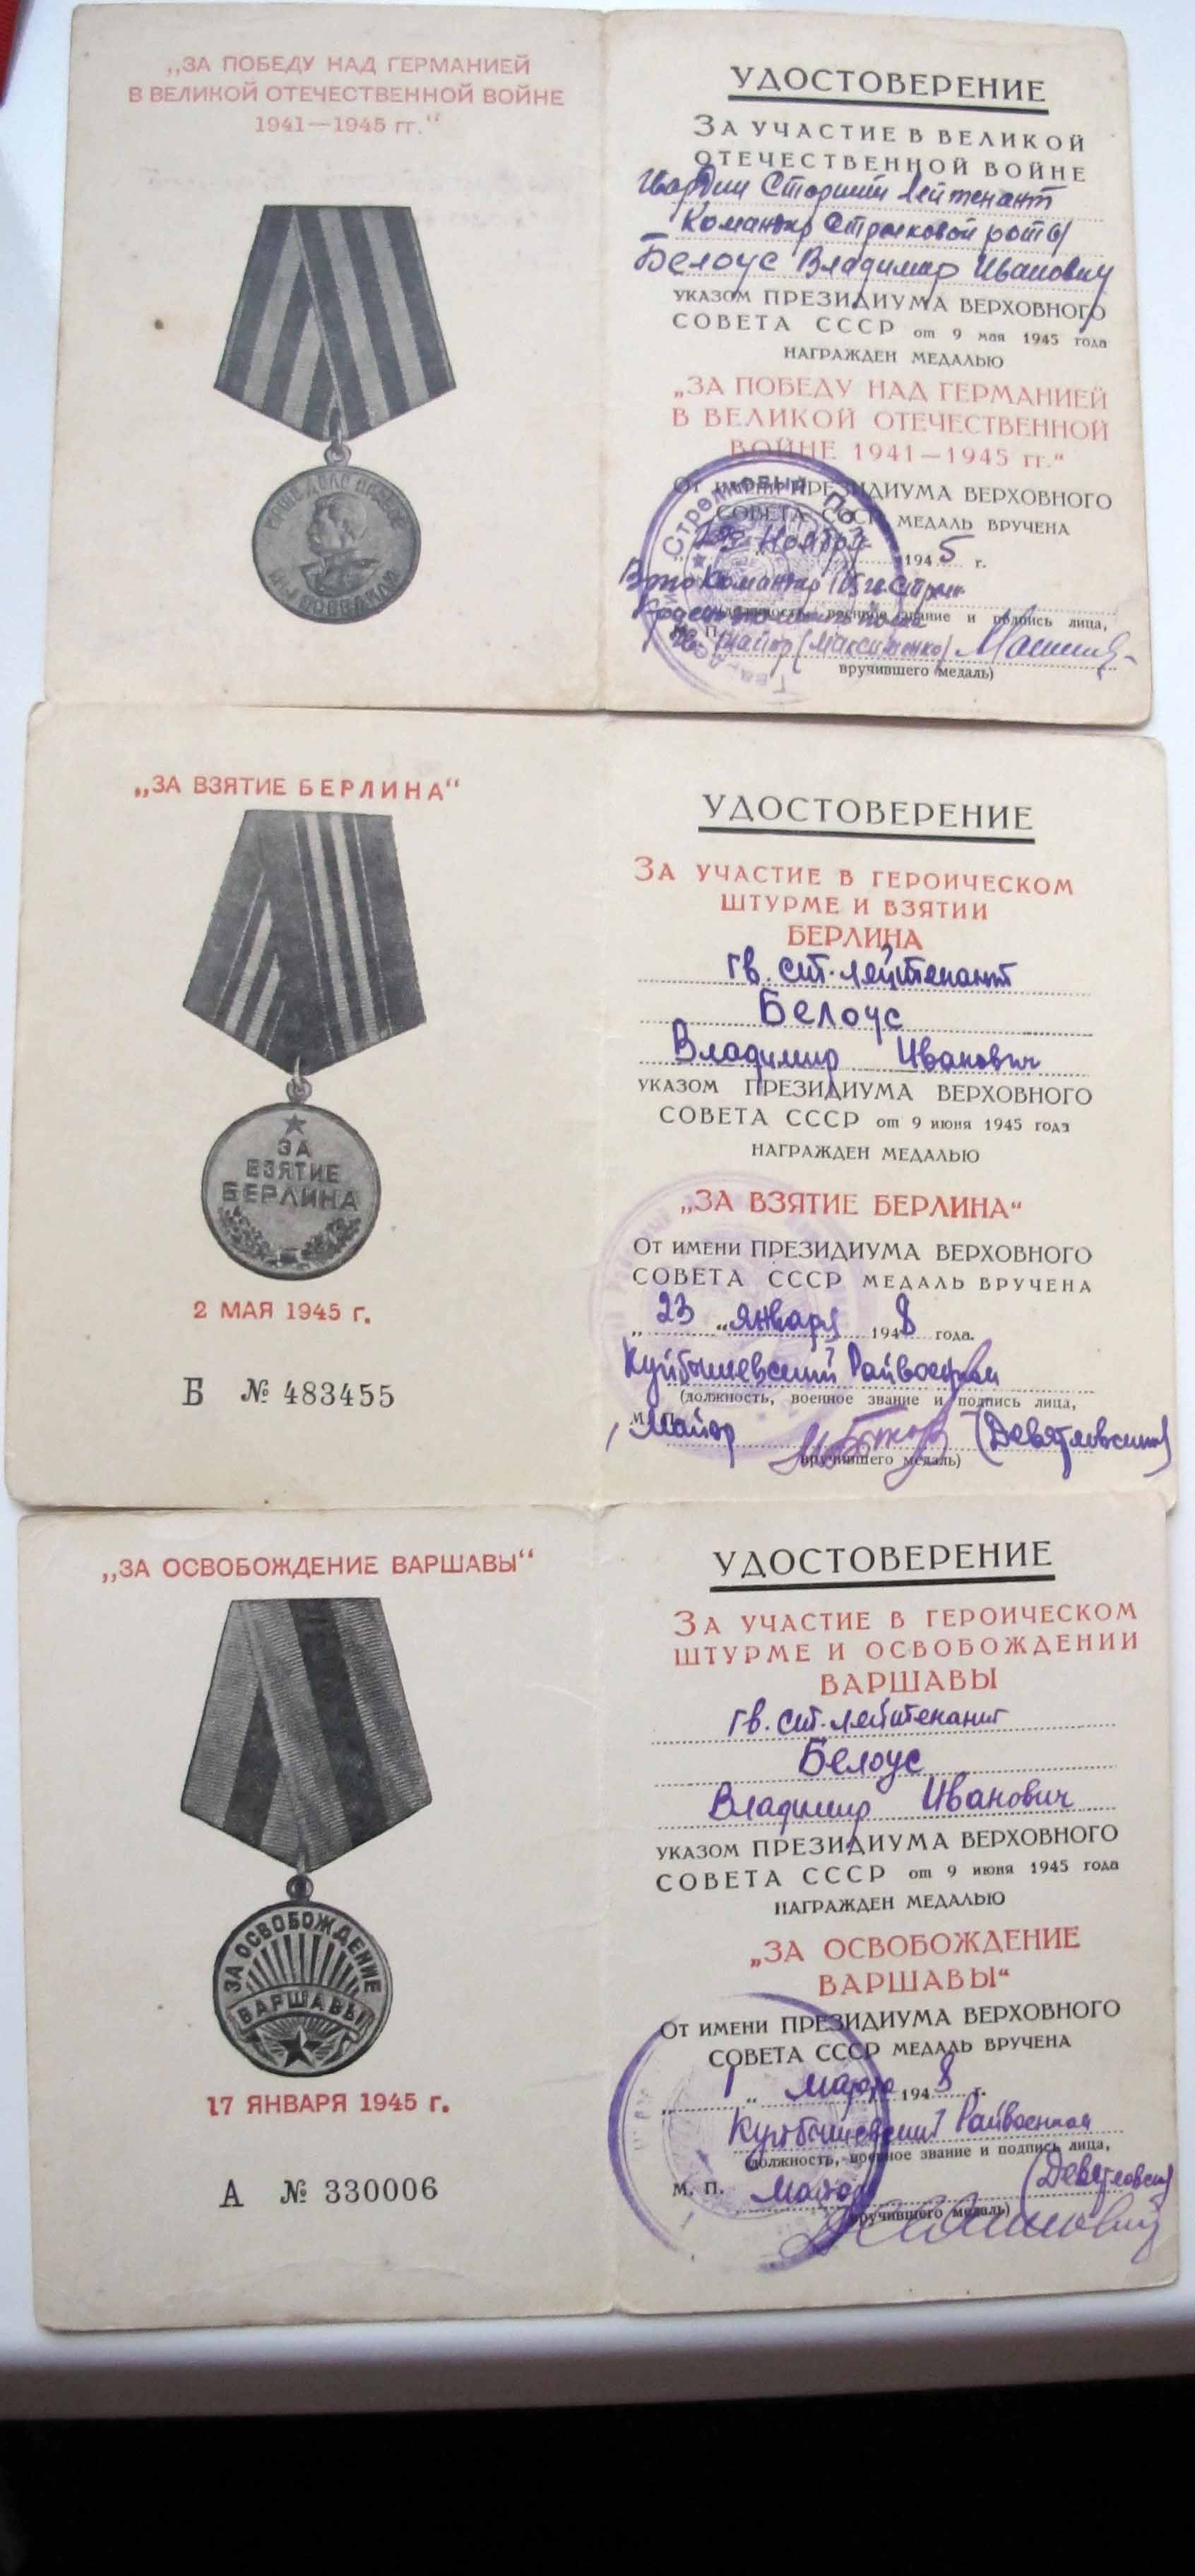 „ЗА ПОБЕДУ НАД ГЕРМАНИЕЙ
В ВЕЛИКОЙ ОТЕЧЕСТВЕННОЙ ВОЙНЕ
1941—1945 гг.“
НАШЕ ДЕЛО ПРАВОЕ
МЫ ПОБЕДИЛИ
УДОСТОВЕРЕНИЕ
ЗА УЧАСТИЕ В ВЕЛИКОЙ
ОТЕЧЕСТВЕННОЙ ВОЙНЕ
Гвардии Старший лейтенант
Командир Стрелковой роты
Белоус Владимир Иванович
УКАЗОМ ПРЕЗИДИУМА ВЕРХОВНОГО
СОВЕТА СССР от 9 мая 1945 года
НАГРАЖДЕН МЕДАЛЬЮ
„ЗА ПОБЕДУ НАД ГЕРМАНИЕЙ
В ВЕЛИКОЙ ОТЕЧЕСТВЕННОЙ
ВОЙНЕ 1941—1945 гг.“
ОТ ИМЕНИ ПРЕЗИДИУМА ВЕРХОВНОГО
СОВЕТА СССР МЕДАЛЬ ВРУЧЕНА
Ноября 1945 г.
Командир
(должность, военное звание и подпись лица,
М. П. майор (Максименко)
вручившего медаль)
Стрелковый
„ЗА ВЗЯТИЕ БЕРЛИНА“
ЗА
ВЗЯТИЕ
БЕРЛИНА
2 МАЯ 1945 г.
Б № 483455
УДОСТОВЕРЕНИЕ
ЗА УЧАСТИЕ В ГЕРОИЧЕСКОМ
ШТУРМЕ И ВЗЯТИИ
БЕРЛИНА
гв. ст. лейтенант
Белоус
Владимир Иванович
УКАЗОМ ПРЕЗИДИУМА ВЕРХОВНОГО
СОВЕТА СССР от 9 июня 1945 года
НАГРАЖДЕН МЕДАЛЬЮ
„ЗА ВЗЯТИЕ БЕРЛИНА“
ОТ ИМЕНИ ПРЕЗИДИУМА ВЕРХОВНОГО
СОВЕТА СССР МЕДАЛЬ ВРУЧЕНА
„ 23 „ января 1948 года.
Куйбышевский Райвоенком
(должность, военное звание и подпись лица,
М. П. Майор (Девятловский)
вручившего медаль)
„ЗА ОСВОБОЖДЕНИЕ ВАРШАВЫ“
ЗА ОСВОБОЖДЕНИЕ
ВАРШАВЫ
17 ЯНВАРЯ 1945 г.
А № 330006
УДОСТОВЕРЕНИЕ
ЗА УЧАСТИЕ В ГЕРОИЧЕСКОМ
ШТУРМЕ И ОСВОБОЖДЕНИИ
ВАРШАВЫ
гв. ст. лейтенант
Белоус
Владимир Иванович
УКАЗОМ ПРЕЗИДИУМА ВЕРХОВНОГО
СОВЕТА СССР от 9 июня 1945 года
НАГРАЖДЕН МЕДАЛЬЮ
„ЗА ОСВОБОЖДЕНИЕ
ВАРШАВЫ“
ОТ ИМЕНИ ПРЕЗИДИУМА ВЕРХОВНОГО
СОВЕТА СССР МЕДАЛЬ ВРУЧЕНА
„ 1 „ марта 1948 г.
Куйбышевский Райвоенком
(должность, военное звание и подпись лица,
М. П. Майор
вручившего медаль)